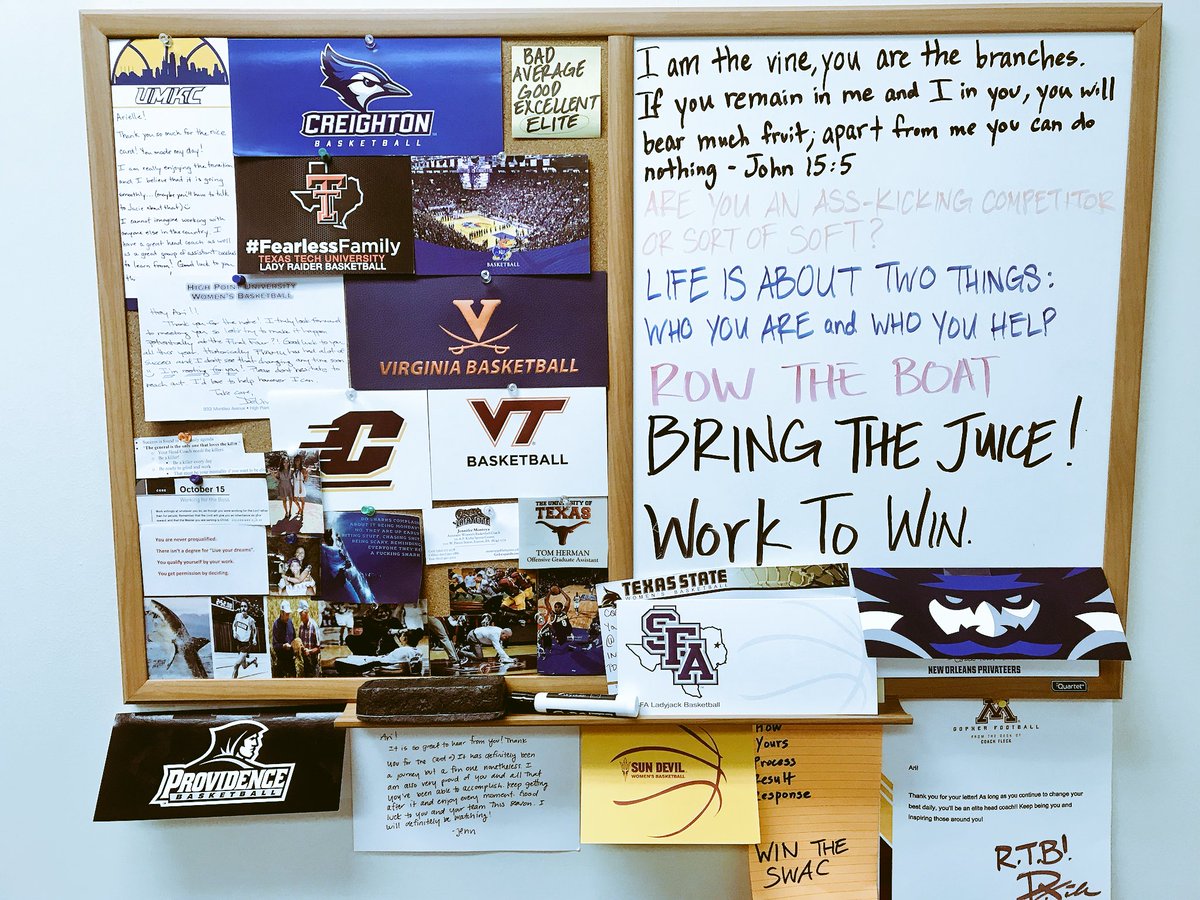 UMKC
Arielle!
Thank you so much for the nice
card! You made my day!
I am really enjoying the transition
and I believe that it is going
smoothly... (maybe you'll have to talk
to Jacie about that)
I cannot imagine working with
anyone else in the country. I
have a great head coach as well
as a great group of assistant coaches
to learn from! Good luck to you,
CREIGHTON
BASKETBALL
BAD
AVERAGE
GOOD
EXCELLENT
ELITE
#FearlessFamily
TEXAS TECH UNIVERSITY
LADY RAIDER BASKETBALL
BASKETBALL
HIGH POINT UNIVERSITY
WOMEN'S BASKETBALL
Hey Ari!!
Thank you for the note! I truly look forward
to meeting you, so let's try to make it happen
potentially at the Final Four?! Good luck to you
all this year.
I'm rooting for you! Please don't hesitate to
reach out. I'd love to help however I can.
Take care,
V
VIRGINIA BASKETBALL
C
VT
BASKETBALL
"The general is the only one that loves the killer
Your Head Coach needs the killers
Be a killer!
Be a killer every day
Be ready to grind and work
October 15
Working for the Boss
You are never prequalified.
There isn't a degree for "Live your dreams".
You qualify yourself by your work.
You get permission by deciding.
DO SHARKS COMPLAIN
ABOUT IT BEING MONDAY?
NO. THEY ARE UP EARLY
BITING STUFF, CHASING SHIT,
BEING SCARY, REMINDING
EVERYONE THEY'RE
A FUCKING SHARK.
THE UNIVERSITY OF
TEXAS
TOM HERMAN
Offensive Graduate Assistant
I am the vine, you are the branches.
If you remain in me and I in you, you will
bear much fruit; apart from me you can do
nothing - John 15:5
ARE YOU AN ASS-KICKING COMPETITOR
OR SORT OF SOFT?
LIFE IS ABOUT TWO THINGS:
WHO YOU ARE and WHO YOU HELP
ROW THE BOAT
BRING THE JUICE!
WORK TO WIN.
TEXAS STATE
WOMEN'S BASKETBALL
SFA
FA Ladyjack Basketball
NEW ORLEANS PRIVATEERS
Quartet
PROVIDENCE
BASKETBALL
Ari!
It is so great to hear from you! Thank
you for the card :) It has definitely been
a journey but a fun one nonetheless. I
am also very proud of you and all that
you've been able to accomplish. Keep getting
after it and enjoy every moment. Good
luck to you and your team this season. I
will definitely be watching!
-Jenn
SUN DEVIL
WOMEN'S BASKETBALL
How
Yours
Process
Result
Response
WIN THE
SWAC
M
GOPHER FOOTBALL
FROM THE DESK OF
COACH FLECK
Ari!
Thank you for your letter! As long as you continue to change your
best daily, you'll be an elite head coach!! Keep being you and
inspiring those around you!
R.T.B!